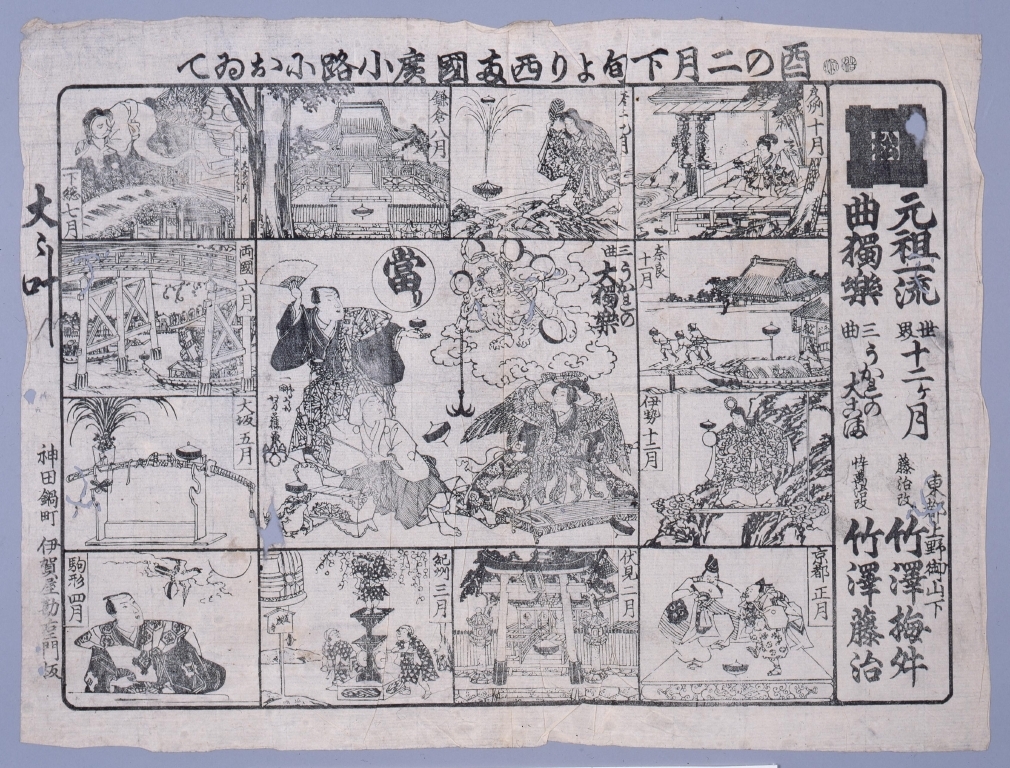 酉の二月下旬より西両國廣小路におゐて
元祖一流
曲獨樂
世界十二ヶ月
曲
三うかゐの
大こま
藤治改
竹澤梅升
忰萬治改
竹澤藤治
東都上野御山下
京都 正月
伏見 二月
紀州 三月
駒形 四月
大坂 五月
両國 六月
下總 七月
鎌倉 八月
十月
奈良
十一月
伊勢 十二月
當り
曲
大獨樂
大叶
神田鍋町 伊賀屋勘右衛門板